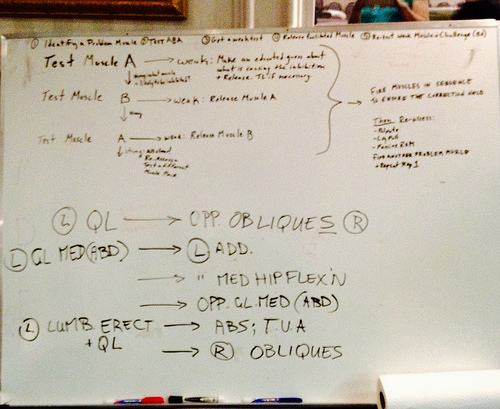 ① Identify a Problem Muscle ② TEST ABA ③ Get a weak test ④ Release Facilitated Muscle ⑤ Re-test weak Muscle + Challenge
Test Muscle A → weak: Make an educated guess about
what is causing the inhibition
+ Release. TL if necessary.
Test Muscle B → weak: Release Muscle A
strong
Test Muscle A → weak: Release Muscle B
strong:
Re-Assess
Test a different
Muscle Pair
FIRE MUSCLES IN SEQUENCE
TO ENSURE THE CORRECTION HOLD
Then Re-assess:
- Palpate
- Passive ROM
FIND ANOTHER PROBLEM MUSCLE
+ Repeat Step 1
Ⓛ QL → OPP. OBLIQUES Ⓡ
Ⓛ GL MED (ABD) → Ⓛ ADD.
→ " MED HIP FLEX'N
→ OPP. GL. MED (ABD)
Ⓛ LUMB. ERECT → ABS; T.V.A
+ QL → Ⓡ OBLIQUES